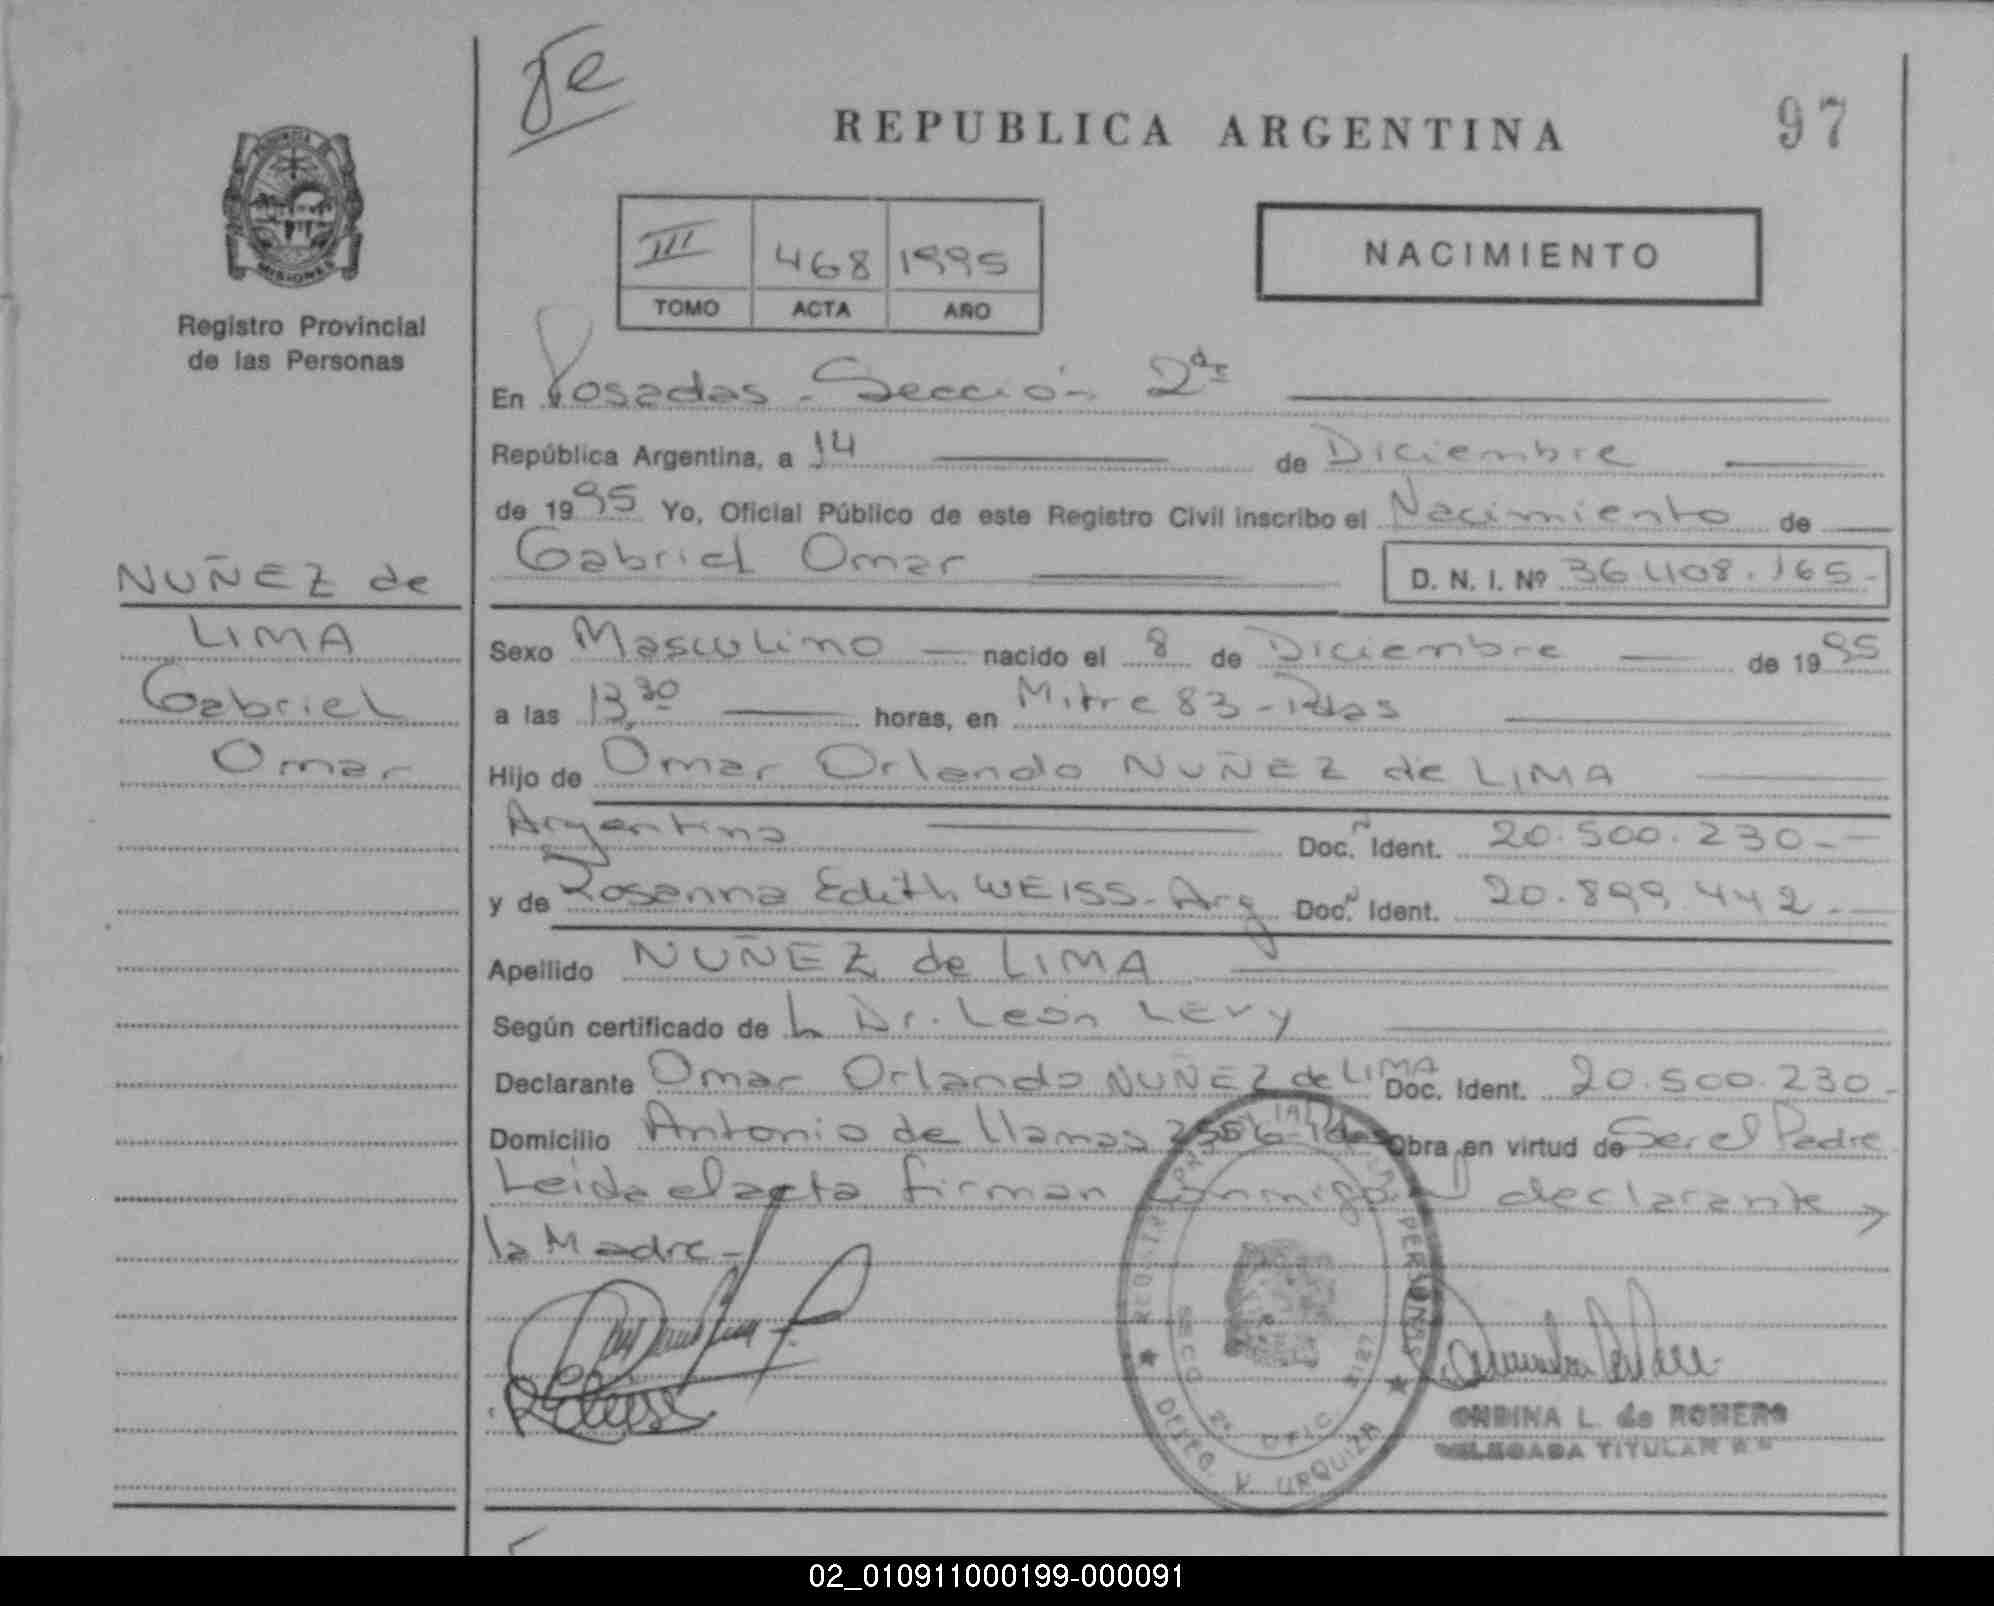 8e
REPUBLICA ARGENTINA
97
MISIONES
Registro Provincial
de las Personas
III 468 1995
TOMO ACTA AÑO
NACIMIENTO
En Posadas - Sección 2da
República Argentina, a 14 de Diciembre
de 1995 Yo, Oficial Público de este Registro Civil inscribo el Nacimiento de
Gabriel Omar
D. N. I. Nº 36.408.165-
NUÑEZ de
LIMA
Gabriel
Omar
Sexo Masculino nacido el 8 de Diciembre de 1995
a las 13,30 horas, en Mitre 83 - Pdas
Hijo de Omar Orlando NUÑEZ de LIMA
Argentino Doc. Ident. 20.500.230-
y de Rosanna Edith WEISS - Arg Doc. Ident. 20.899.442-
Apellido NUÑEZ de LIMA
Según certificado de L Dr. León Levy
Declarante Omar Orlando NUÑEZ de LIMA Doc. Ident. 20.500.230-
Domicilio Antonio de Llamas Obra en virtud de Ser el Padre
Leida el acta firman conmigo el declarante y
la Madre-
PERSONAS
SECC. 2ª OFIC.
DELEG. V. URQUIZA
ONDINA L. de ROMERO
DELEGADA TITULAR
02_010911000199-000091